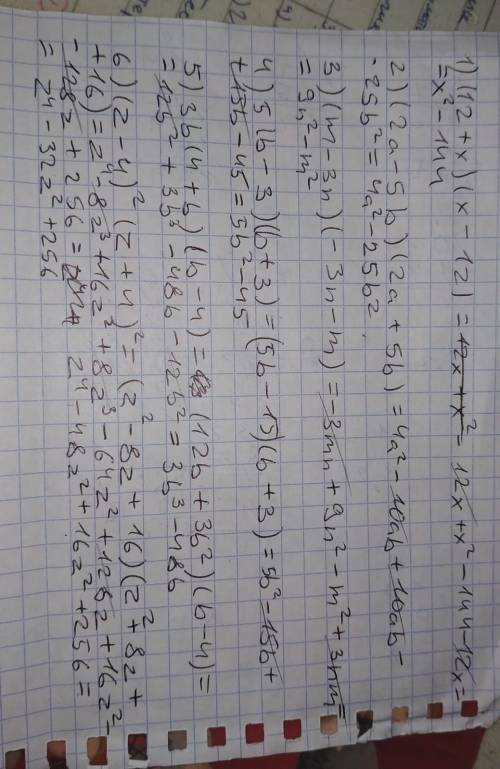 1) (12+x)(x-12) = 12x+x²= 12x+x²-144-12x=
=x²-144
2) (2a-5b)(2a+5b) = 4a²-10ab+10ab-
-25b²=4a²-25b².
3) (m-3n)(-3n-m)=-3mn+9n²-m²+3nm=
=9n²-m²
4) 5(b-3)(b+3)=(5b-15)(b+3)=5b²-15b+
+15b-45=5b²-45
5) 3b(4+b)(b-4)=(12b+3b²)(b-4)=
=12b²+3b³-48b-12b²=3b³-48b
6) (z-4)²(z+4)²=(z²-8z+16)(z²+8z+
+16)=z⁴-8z³+16z²+8z³-64z²+128z+16z²-
-128z+256= z⁴-48z²+16z²+256=
=z⁴-32z²+256